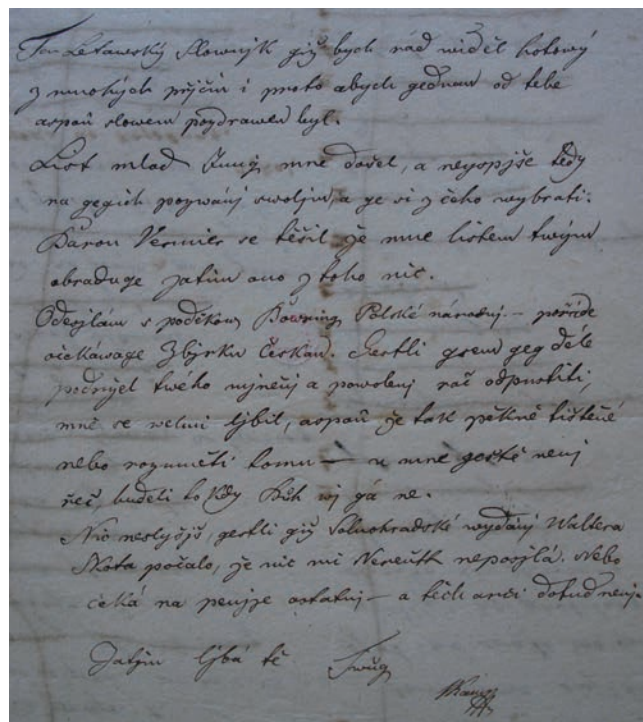 Ten Letawský Slownjk giž bych rád widěl hotowý
z mnohých přjčin i proto abych gednau od tebe
aspoň slowem pozdrawen byl.
List mlad mne došel, a neyspjše tedy
na gegich pozwánj swoljm, a ge si z čeho wybrati.
Baron Vernier se těšil že mne listem twým
obraduge zatim ano z toho nic.
Odesjlám s poděkow. Bowring Polské národnj – pořáde
očekáwage Zbjrku Českau. Gestli gsem geg déle
podržel twého mjněnj a powolenj rač odpustiti,
mně se welmi ljbil, aspoň že tak pěkně tištěné
nebo rozuměti tomu — u mne geště nenj
řeč, budeli to kdy Bůh wj gá ne.
Nic neslyšjš, gestli giž Solnohradské wydánj Waltera
Skota počalo, že nic mi Nereuth neposjlá. Nebo
čeká na penjze ostatnj – a těch ani dotud nenj.
Zatjm ljbá tě Twůg